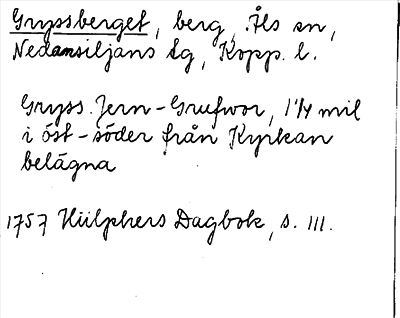 Gryssberget, berg, Åls sn,
Nedansiljans tg, Kopp. l.
Gryss. Jern-Grufwor, 1 1/4 mil
i öst-söder från Kyrkan
belägna
1757 Hülphers Dagbok, s. 111.